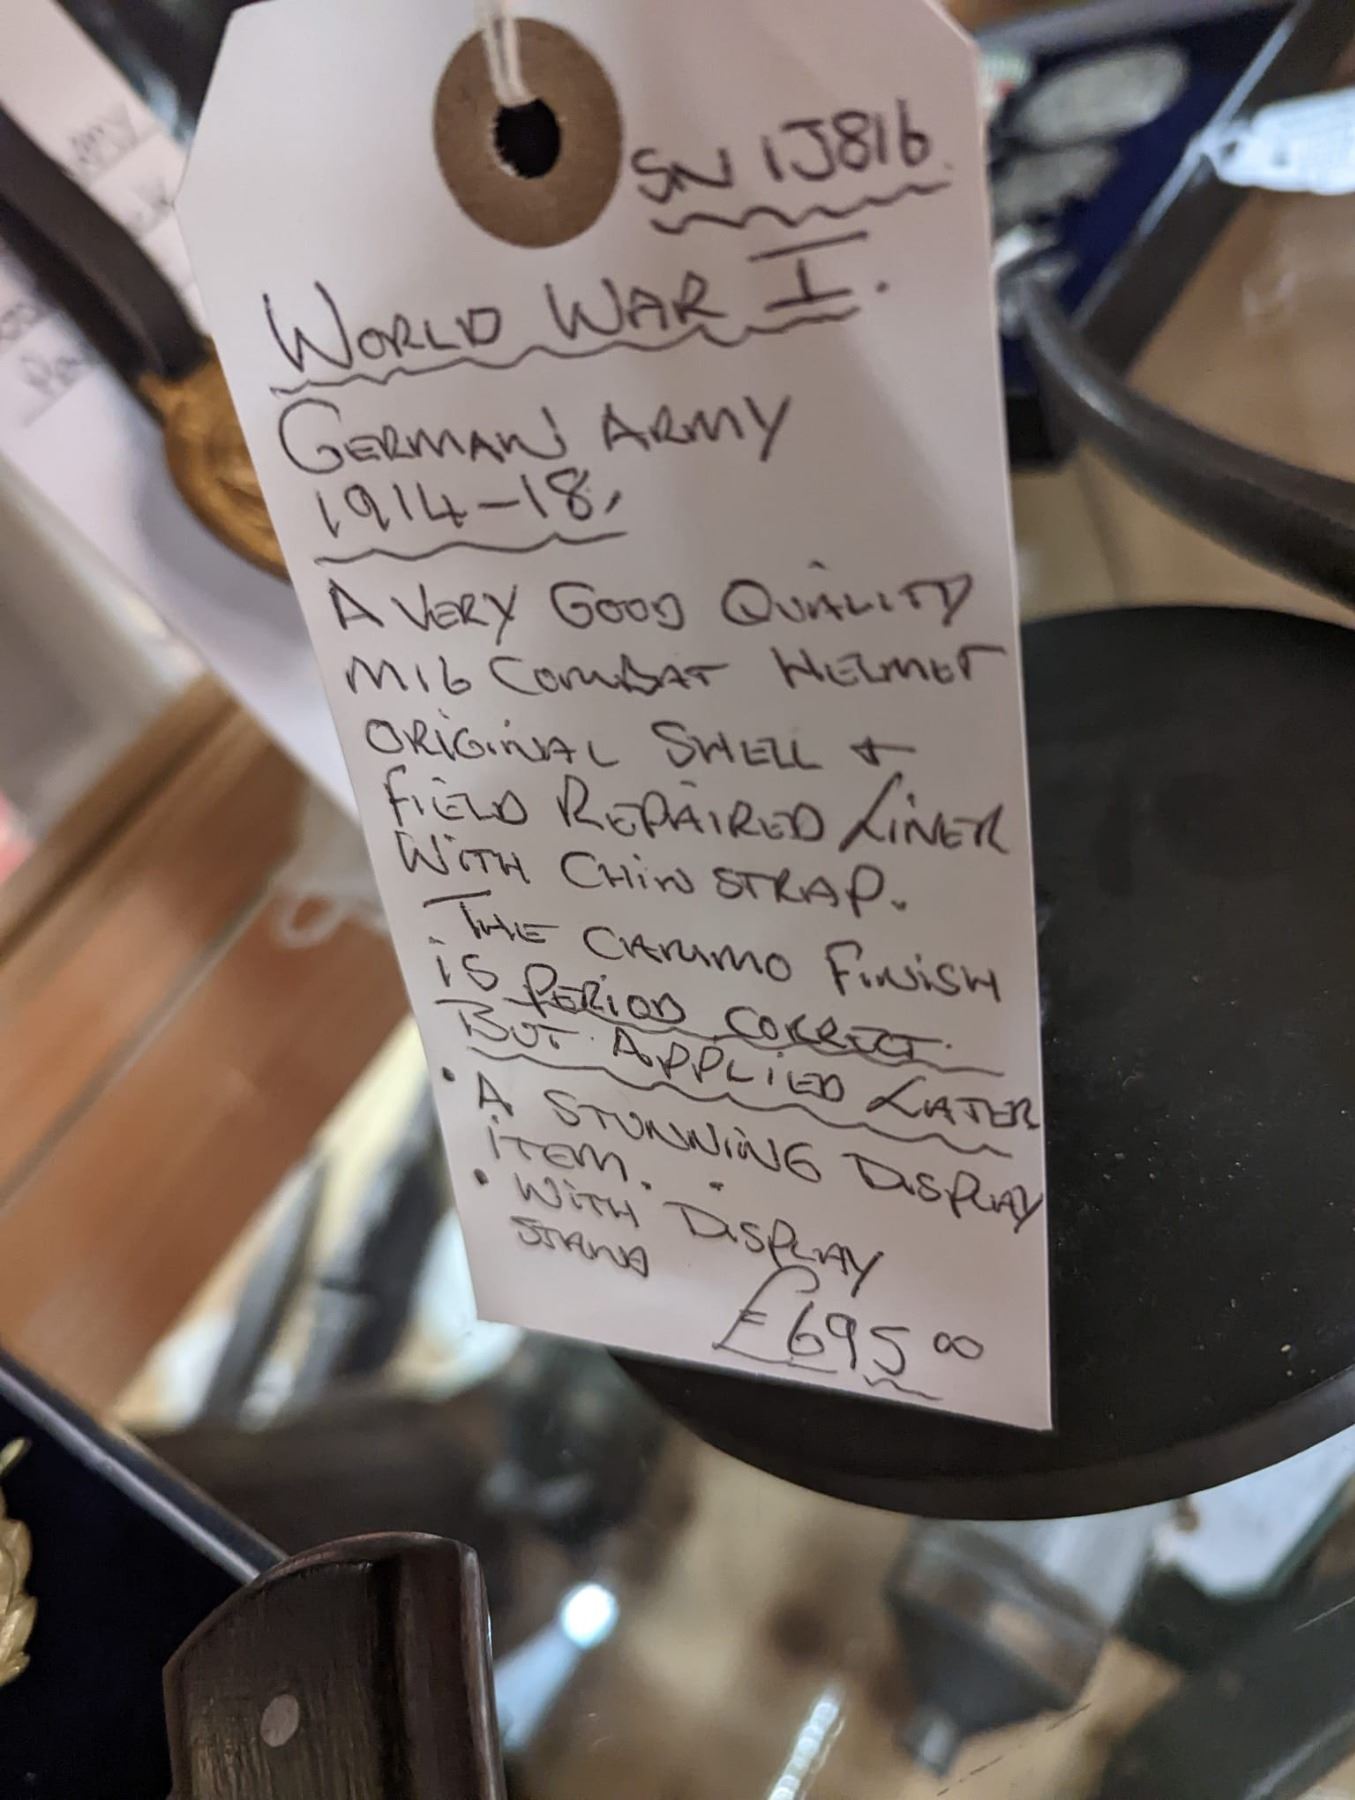 SN 1J816.
WORLD WAR I.
GERMAN ARMY
1914-18.
A VERY GOOD QUALITY
M16 COMBAT HELMET
ORIGINAL SHELL +
FIELD REPAIRED LINER
WITH CHIN STRAP.
THE CAMMO FINISH
IS PERIOD CORRECT.
BUT APPLIED LATER
• A STUNNING DISPLAY
ITEM.
• WITH DISPLAY
STAND
£695 00